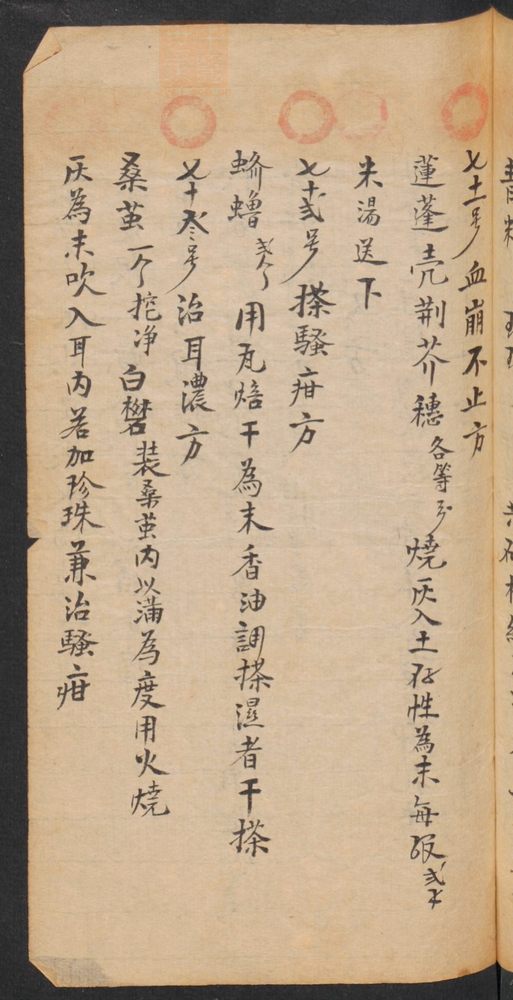 七十一号 血崩不止方
蓮蓬壳荆芥穗各等分燒灰入土存性為末每服弍
米湯送下
七十弍号 搽騷疳方
蜷螬弍个 用瓦焙干為末香油調搽濕者干搽
七十叁号 治耳濃方
桑茧一个挖净 白礬装桑茧内以滿為度用火燒
灰為末吹入耳内若加珍珠兼治騷疳